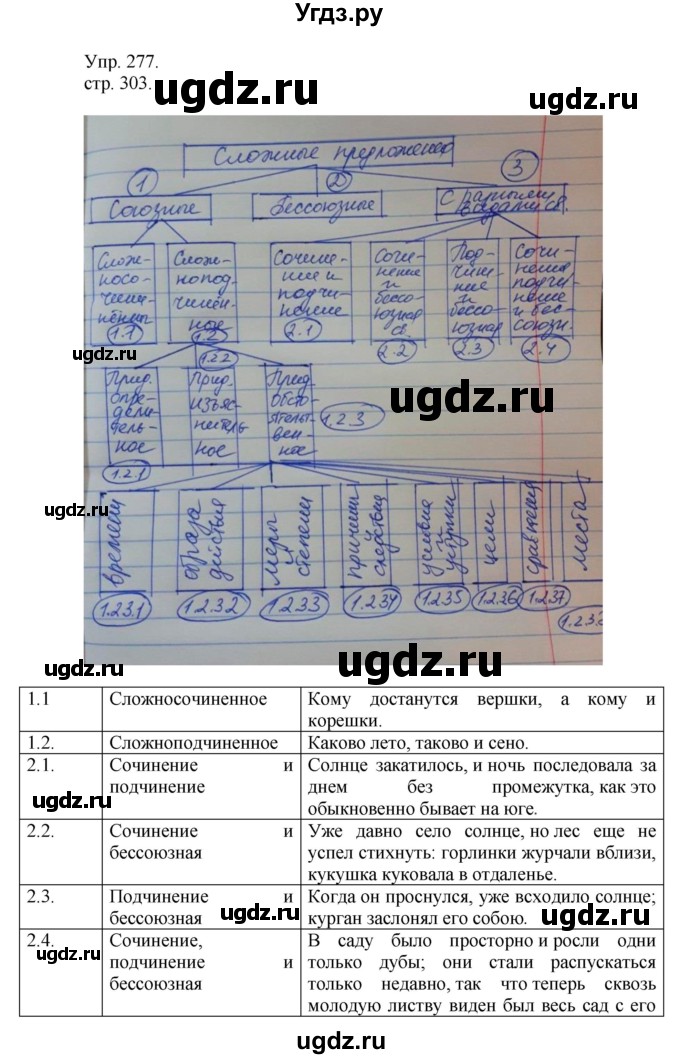 Угдз.ру
Упр. 277.
стр. 303.
ugdz.ru
ugdz.ru
Сложные предложения
1
2
3
Союзные
Бессоюзные
С разными
видами св.
Слож-
носо-
чинен-
ные
1.1
Слож-
нопод-
чинен-
ное
1.2
Сочине-
ние и
подчи-
нение
2.1
Сочи-
нение
и
бессо-
юзная
св.
2.2
Под-
чине-
ние
и
бессо-
юзная
2.3
Сочи-
нение
подчи-
нение
и бес-
союзн.
2.4
ugdz.ru
1.2.2
Прид.
опре-
дели-
тель-
ное
1.2.1
Прид.
изъяс-
нитель
ное
Прид
обсто-
ятельст-
вен-
ное
1.2.3
ugdz.ru
ugdz.ru
времени
образа
действия
меры
и
степени
причины
и
следствия
условия
и
уступки
цели
сравнения
места
1.2.3.1
1.2.3.2
1.2.3.3
1.2.3.4
1.2.3.5
1.2.3.6
1.2.3.7
ugdz.ru
ugdz.ru
1.1 Сложносочиненное Кому достанутся вершки, а кому и
корешки.
1.2. Сложноподчиненное Каково лето, таково и сено.
2.1. Сочинение и Солнце закатилось, и ночь последовала за
подчинение днем без промежутка, как это
ugdz.ru
обыкновенно бывает на юге.
2.2. Сочинение и Уже давно село солнце, но лес еще не
бессоюзная успел стихнуть: горлинки журчали вблизи,
кукушка куковала в отдаленье.
2.3. Подчинение и Когда он проснулся, уже всходило солнце;
бессоюзная курган заслонял его собою.
ugdz.ru
ugdz.ru
2.4. Сочинение, В саду было просторно и росли одни
подчинение и только дубы; они стали распускаться
ugdz.ru
бессоюзная только недавно, так что теперь сквозь
молодую листву виден был весь сад с его
ugdz.ru